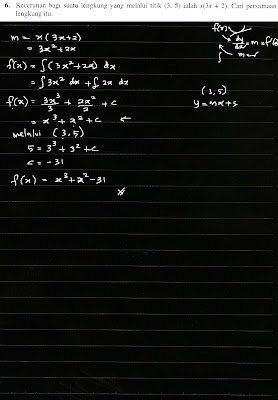 6. Kecerunan bagi suatu lengkung yang melalui titik (3, 5) ialah x(3x + 2). Cari persamaan
lengkung itu.
m = x(3x+2)
= 3x² + 2x
f(x) = ∫(3x²+2x) dx
= ∫3x² dx + ∫2x dx
f(x) = 3x³/3 + 2x²/2 + c
= x³ + x² + c ←
melalui (3, 5)
5 = 3³ + 3² + c
c = -31
f(x) = x³ + x² - 31
f(x)
dy/dx = m = f'(x)
∫ m
(3, 5)
y = mx + c